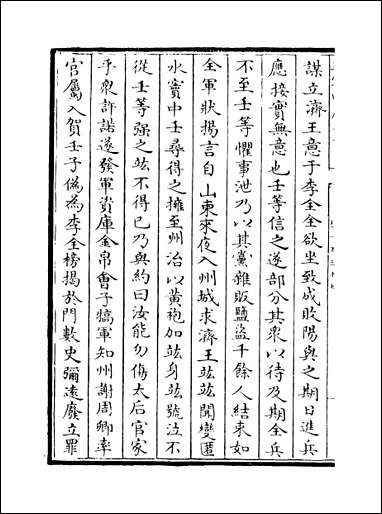 謀立濟王意于李全全欲坐致成敗陽與之期日進兵
應接實無意也壬等信之遂部分其衆以待及期全兵
不至壬等懼事泄乃以其黨雜販鹽盜千餘人結束如
全軍狀揚言自山東來夜入州城求濟王竑竑聞變匿
水竇中壬尋得之擁至州治以黄袍加竑身竑號泣不
從壬等强之竑不得已乃與約曰汝能勿傷太后官家
乎衆許諾遂發軍資庫金帛會子犒軍知州謝周卿率
官屬入賀壬子僞為李全榜揭於門數史彌遠廢立罪